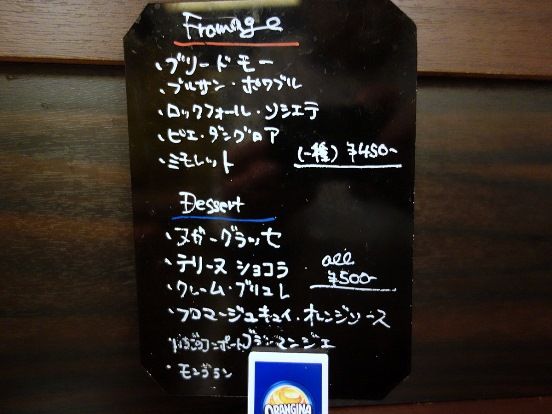 Fromage
・ブリード モー
・ブルサン・ポワブル
・ロックフォール・ソシエテ
・ピエ・ダングロア
・ミモレット
(一種) ¥450-
Dessert
・ヌガーグラッセ
・テリーヌ ショコラ
all
¥500-
・クレーム・ブリュレ
・フロマージュキュイ・オレンジソース
・いちごのコンポートブランマンジェ
・モンブラン
ORANGINA